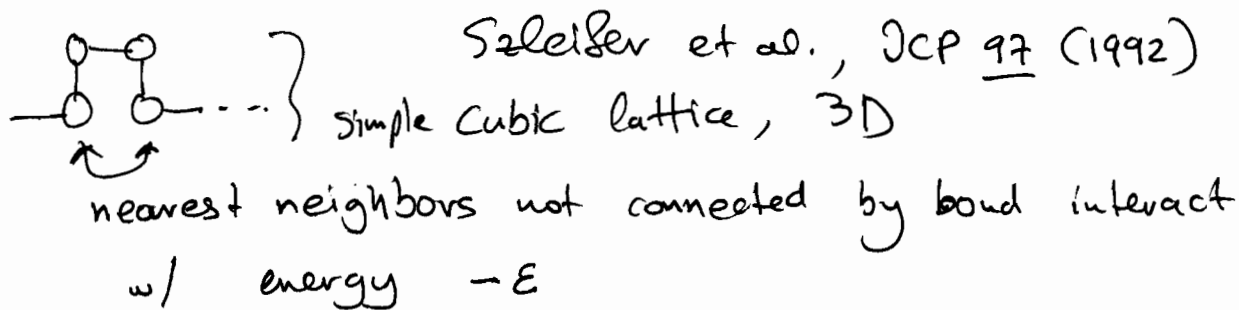 Szleifer et al., JCP 97 (1992)
simple cubic lattice, 3D
nearest neighbors not connected by bond interact
w/ energy -ε